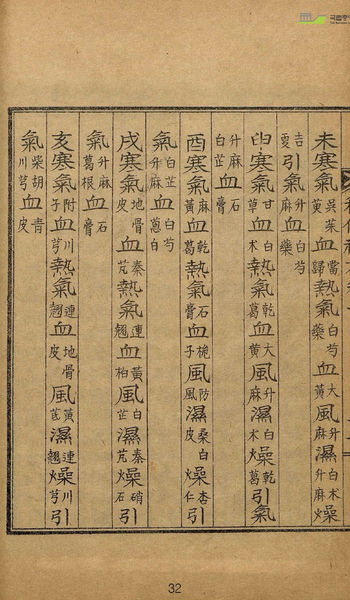 未寒氣吳茱萸血當歸熱氣白芍藥血大黃風升麻濕白木升麻燥
吉更引氣升麻血白芍藥
申寒氣甘草血白木熱氣乾葛血大黃風升麻濕白木燥乾葛引氣
升麻白芷血石膏
酉寒氣麻黃血乾葛熱氣石膏血梔子風防風濕桑白皮燥杏仁引
氣白芷升麻血白芍蔥白
戌寒氣地骨皮血秦芃熱氣連翹血黃柏風白芷濕秦芃燥硝石引
氣升麻葛根血石膏
亥寒氣附子血川芎熱氣連翹血地骨皮風黃芪濕連翹燥川芎引
氣柴胡川芎血青皮
32